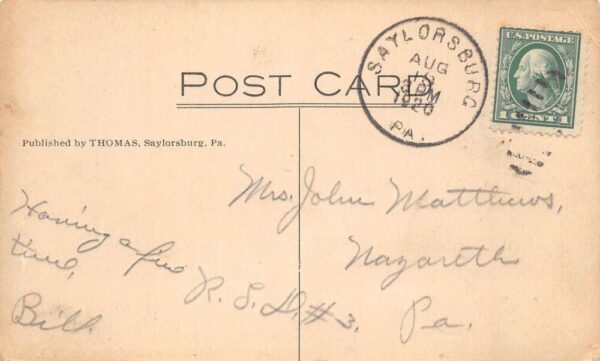 POST CARD
SAYLORSBURG
AUG
3 PM
1920
PA.
U.S. POSTAGE
1 CENT 1
Published by THOMAS, Saylorsburg, Pa.
Having a fine
time,
Bill
Mrs. John Matthews,
Nazareth
R. F. D. #3. Pa.